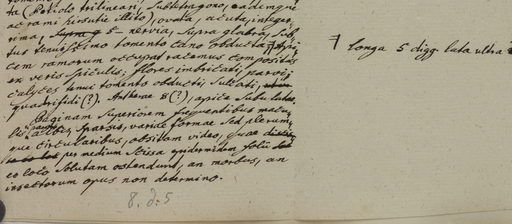 ta (Petiolo trilineari, subtetragono, eademque
ac rami hirsutie illito), ovata, acuta, integer-
rima, supra 5-nervia, supra glabra, sub-
tus tenuissimo tomento cano obducta. Api-
cem ramorum occupat racemus compositus
ex veris spiculis, flores imbricati, parvi,
calyces tenui tomento obducti, sulcati,
quadrifidi (?). Antherae 8 (?), apice subulatae.
Paginam superiorem frequentibus macu-
lis parvis albis, sparsis, variae formae sed plerum-
que circularibus, obsitam video, quae
per medium scissa epidermidem folii
eo loco solutam ostendunt, an morbus, an
insectorum opus non determino.
8. d. 5
7 longa 5 digg. lata ultra